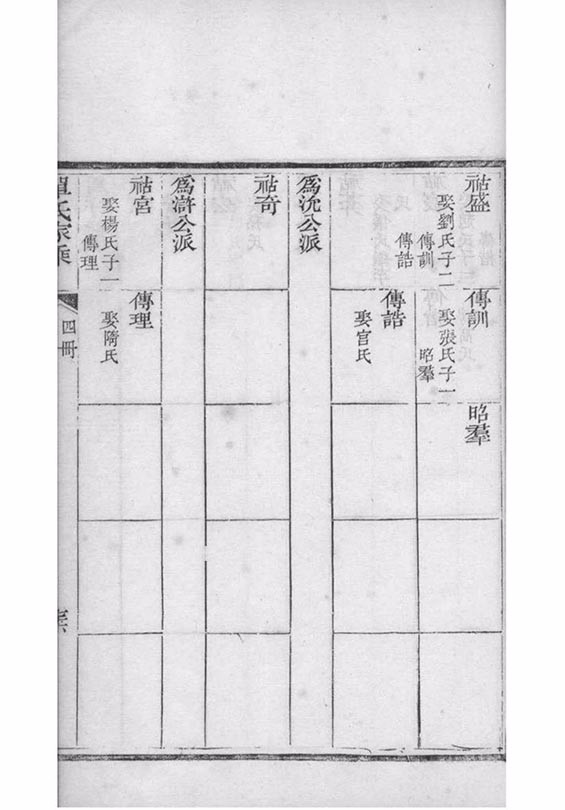 祜盛
娶劉氏子二
傳訓
傳誥
傳訓
娶張氏子一
昭羣
昭羣
傳誥
娶官氏
為沈公派
祜奇
為滸公派
祜宮
娶楊氏子一
傳理
傳理
娶隋氏
氏家乘
四冊